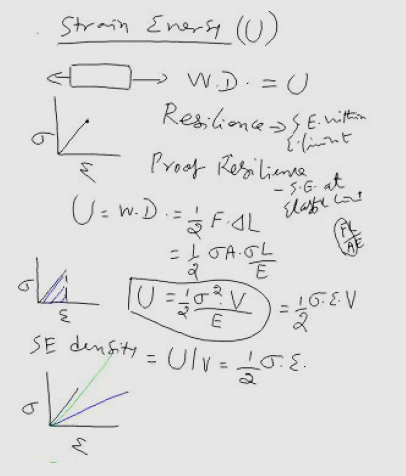 Strain Energy (U)
W.D. = U
Resilience → S.E. within E. limit
σ
ε
Proof Resilience
- S.E. at Elastic Limit
U = W.D. = 1/2 F.ΔL
= 1/2 σA.σL/E
FL/AE
σ
ε
U = 1/2 σ². V/E = 1/2 σ.ε.V
SE density = U/V = 1/2 σ.ε.
σ
ε